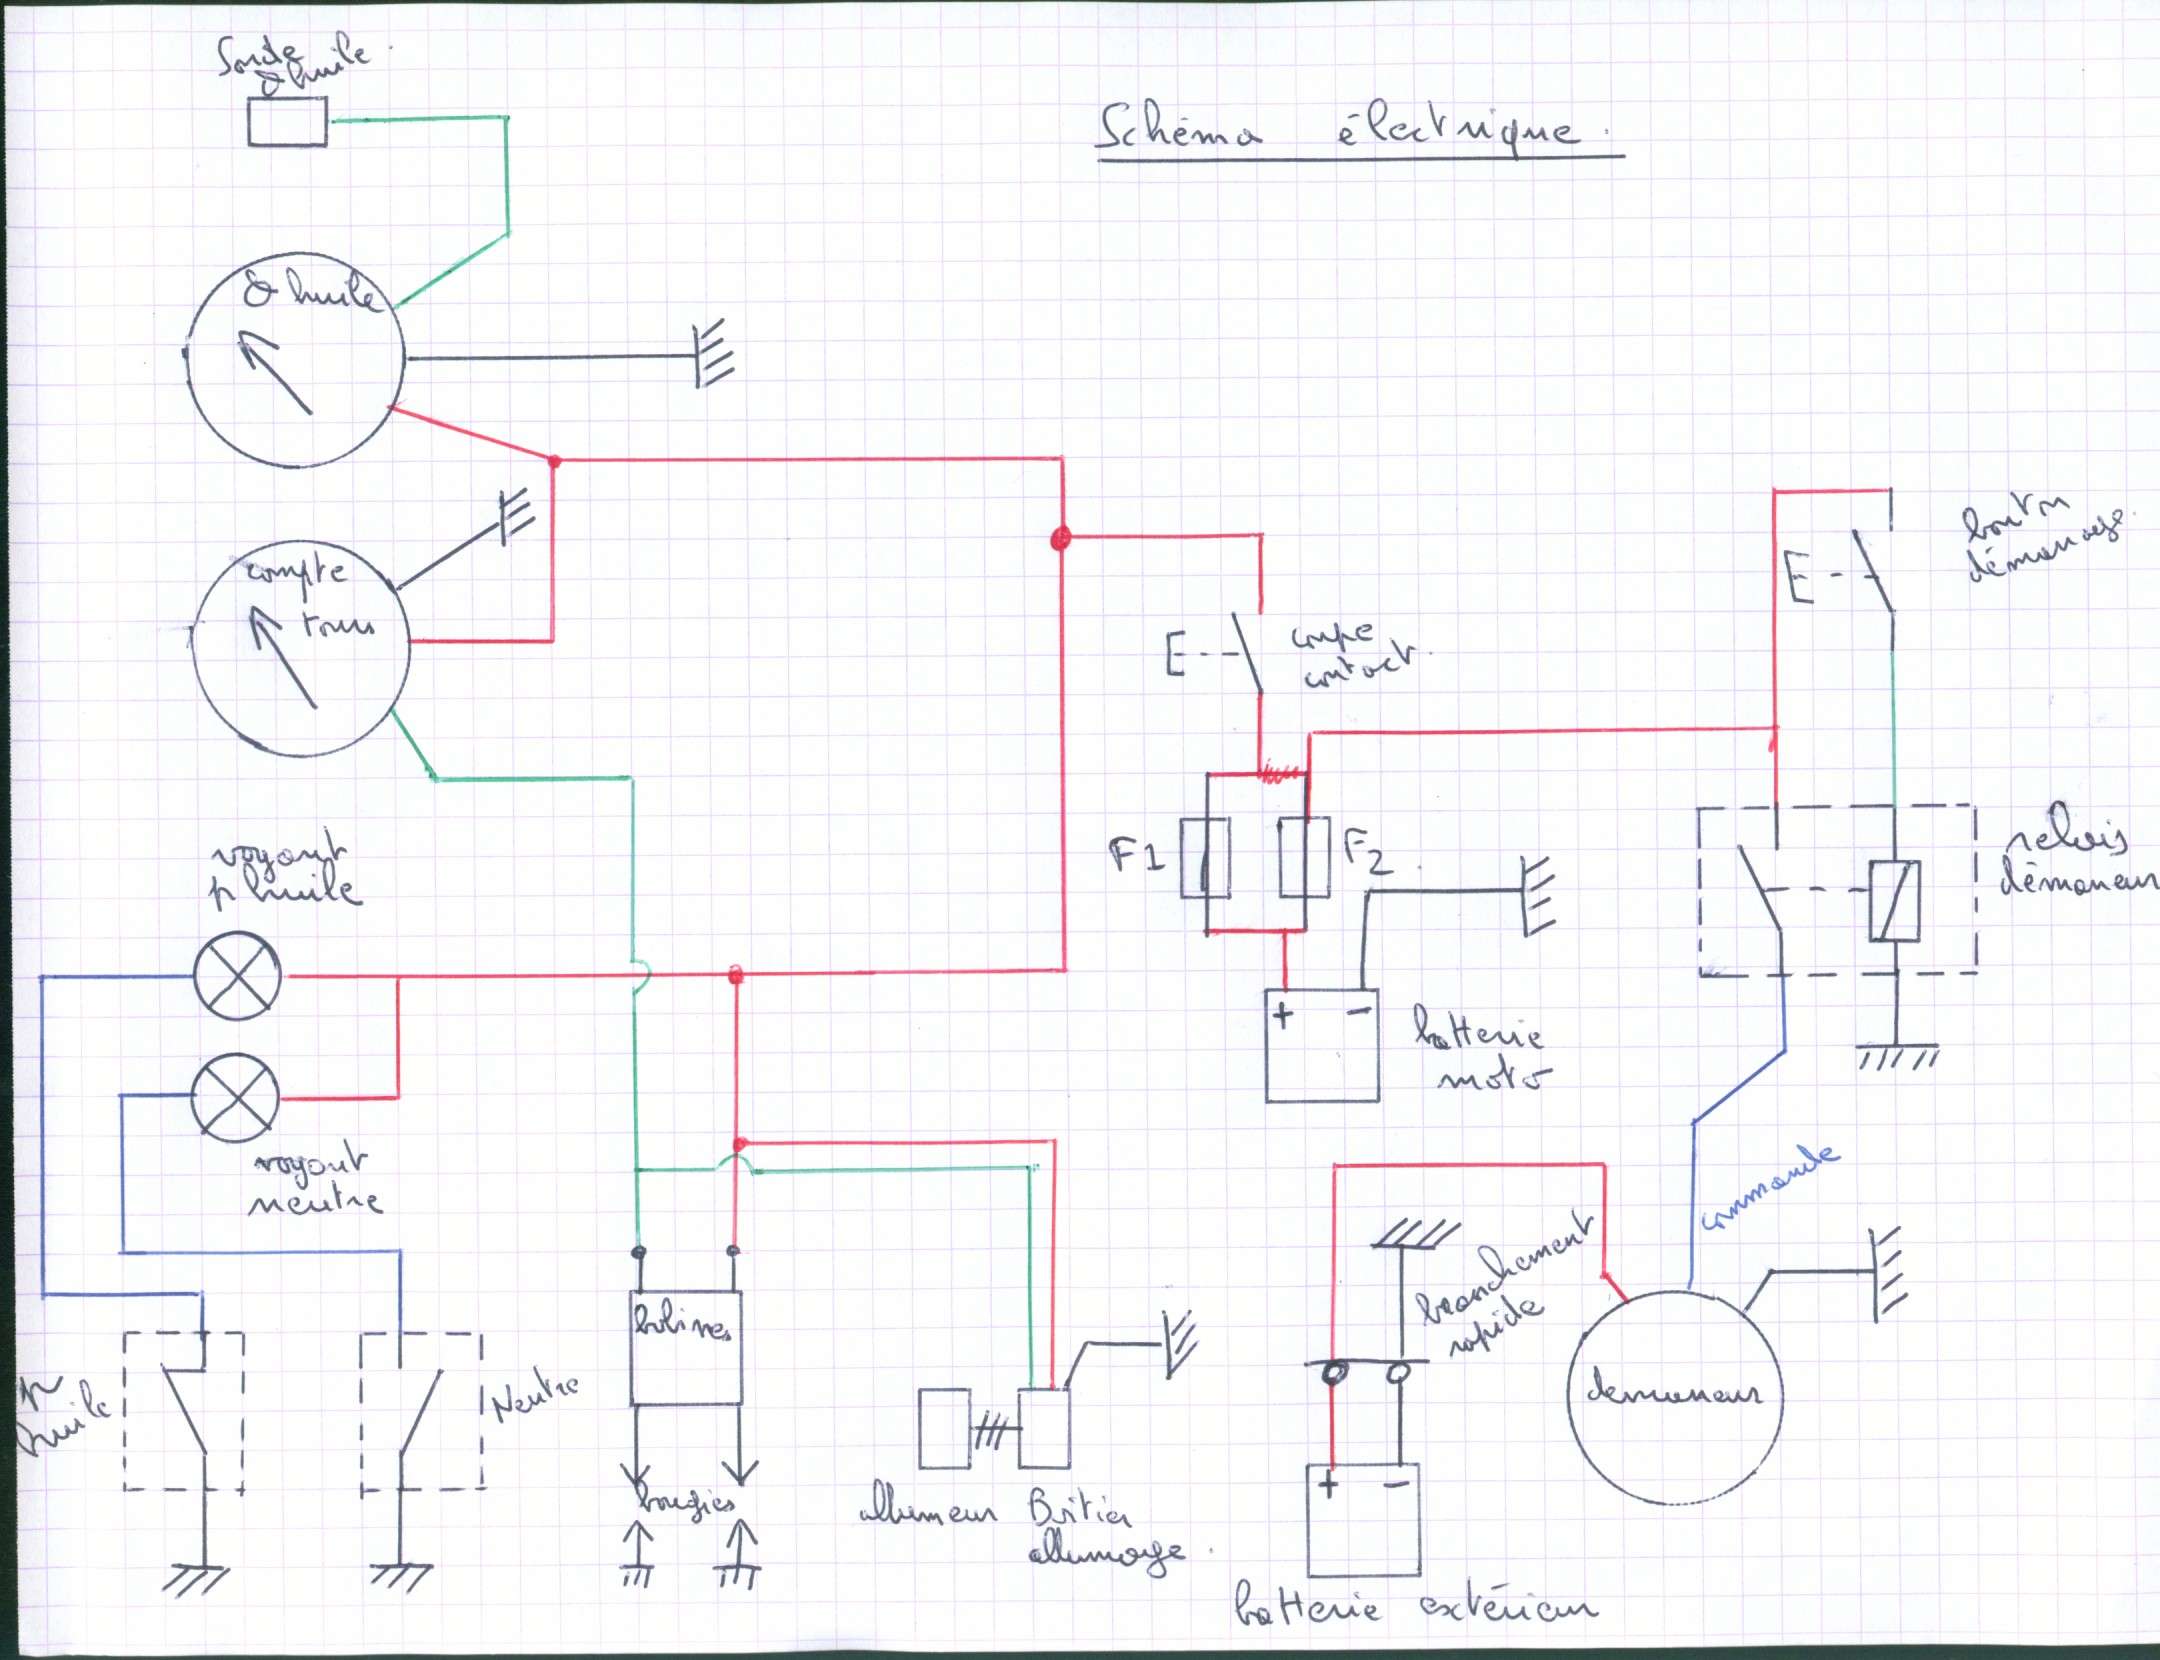 Schéma électrique.
Sonde
θ huile
θ huile
compte
tours
voyant
p huile
voyant
neutre
p
huile
Neutre
bobines
bougies
allumeur
Boîtier
allumage.
E
coupe
contact.
F1
F2
+ -
batterie
moto
E
bouton
démarrage.
relais
démarreur
commande
branchement
rapide
démarreur
+ -
batterie extérieur